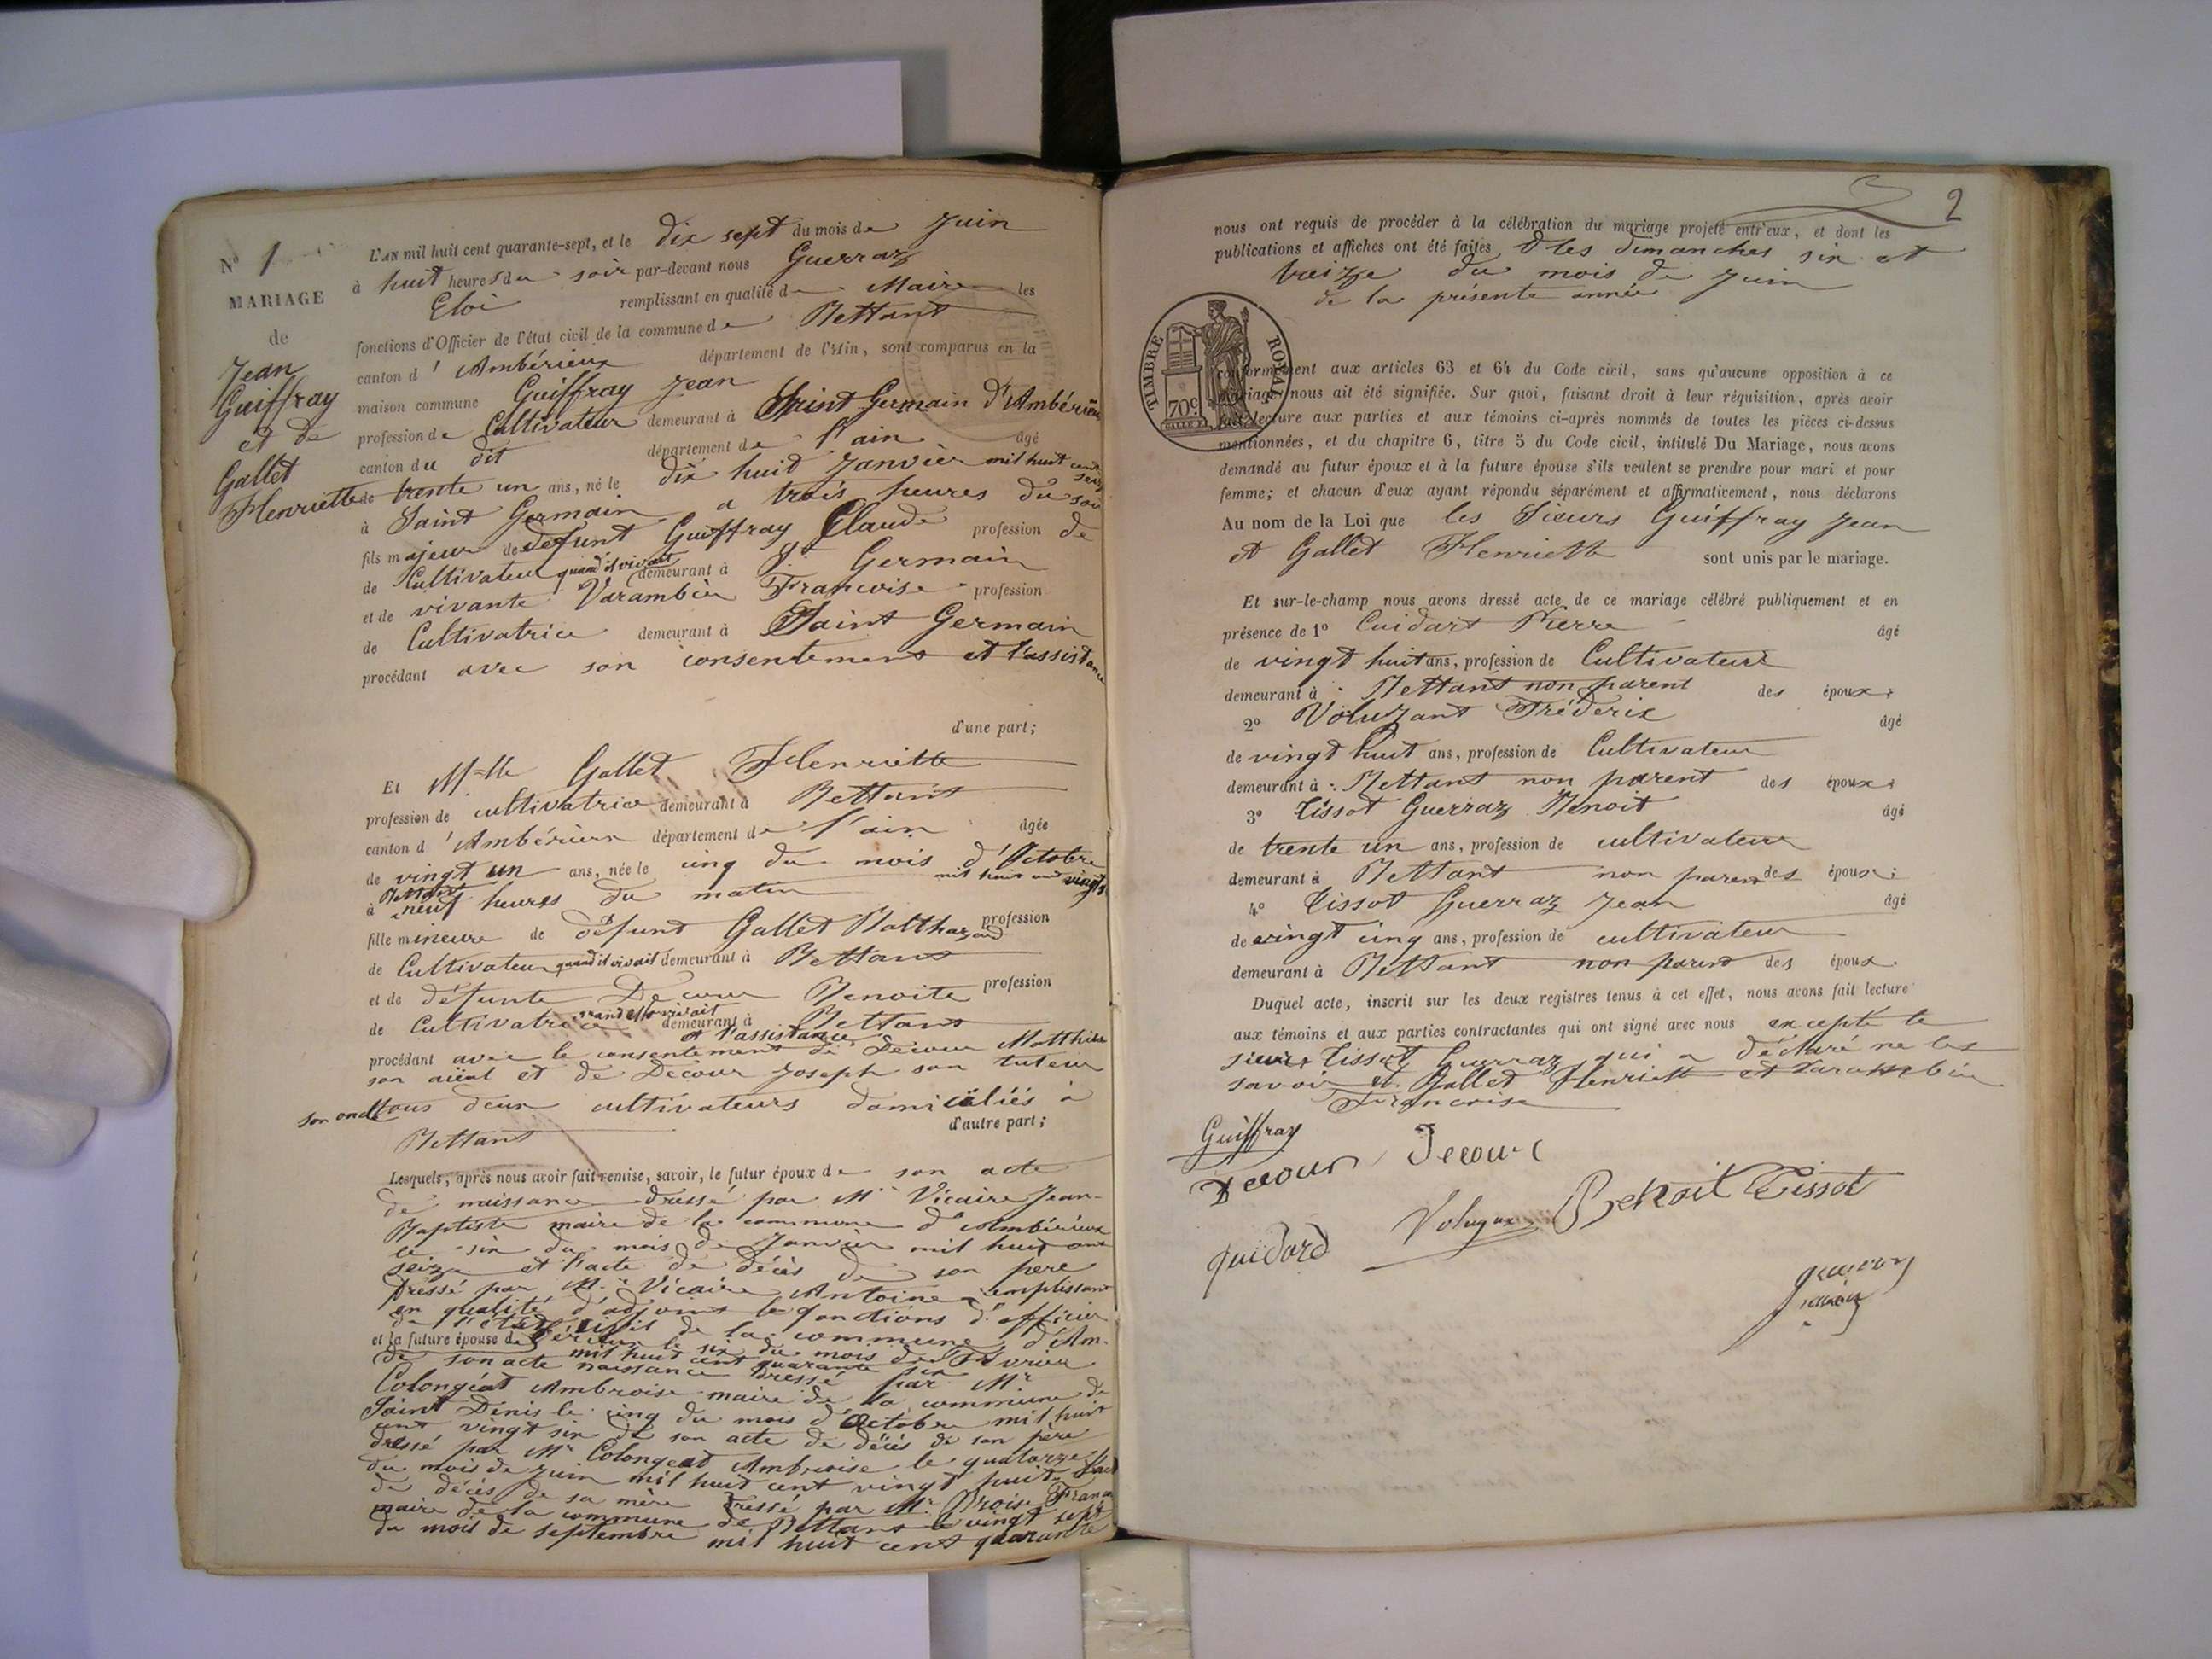 N° 1
MARIAGE
de
Jean
Guiffray
et de
Gallet
Henriette
L'AN mil huit cent quarante-sept, et le dix sept du mois de Juin
à huit heures du soir par-devant nous Guerraz
Eloi remplissant en qualité de Maire les
fonctions d'Officier de l'état civil de la commune de Bettant
canton d'Ambérieux département de l'Ain, sont comparus en la
maison commune Guiffray Jean
profession de Cultivateur demeurant à Saint Germain d'Ambérieu
canton du dit département de l'ain âgé
de trente un ans, né le dix huit Janvier mil huit cent seize
à Saint Germain a trois heures du soir
fils majeur de défunt Guiffray Claude profession de
de Cultivateur quand il vivait demeurant à St Germain
et de vivante Varambier Francoise profession
de Cultivatrice demeurant à Saint Germain
procédant avec son consentement et l'assistance
d'une part;
Et Mlle Gallet Henriette
profession de cultivatrice demeurant à Bettant
canton d'Ambérieux département de l'ain âgée
de vingt un ans, née le cinq du mois d'Octobre
mil huit cent vingt
à Bettant neuf heures du matin
fille mineure de défunt Gallet Balthazard profession
de Cultivateur quand il vivait demeurant à Bettant
et de défunte Decour Benoite profession
de Cultivatrice quand elle vivait demeurant à Bettant
et l'assistance
procédant avec le consentement de Decour Matthieu
son aïeul et de Decour Joseph son tuteur
son oncle tous deux cultivateurs domiciliés à
Bettant d'autre part;
Lesquels, après nous avoir fait remise, savoir, le futur époux de son acte
de naissance dressé par Mr Vicaire Jean-
Baptiste maire de la commune d'Ambérieux
le six du mois de Janvier mil huit cent
seize et l'acte de décès de son pere
dressé par Mr Vicaire Antoine remplissant
en qualité d'adjoint les fonctions d'officier
de l'état civil de la commune d'Am-
et la future épouse de bérieux le six du mois de Février
mil huit cent quarante six
de son acte naissance dressé par Mr
Colongéat Ambroise maire de la commune de
Saint Denis le cinq du mois d'Octobre mil huit
cent vingt six de son acte de décès de son père
dressé par Mr Colongeat Ambroise le quatorze
du mois de Juin mil huit cent vingt huit l'acte
de décès de sa mère dressé par Mr Franc
maire de la commune de Bettant le vingt sept
du mois de septembre mil huit cent quarante
2
nous ont requis de procéder à la célébration du mariage projeté entr'eux, et dont les
publications et affiches ont été faites les dimanches six et
treize du mois de Juin
de la présente année
TIMBRE ROYAL
70c
conformément aux articles 63 et 64 du Code civil, sans qu'aucune opposition à ce
mariage nous ait été signifiée. Sur quoi, faisant droit à leur réquisition, après avoir
fait lecture aux parties et aux témoins ci-après nommés de toutes les pièces ci-dessus
mentionnées, et du chapitre 6, titre 5 du Code civil, intitulé Du Mariage, nous avons
demandé au futur époux et à la future épouse s'ils veulent se prendre pour mari et pour
femme; et chacun d'eux ayant répondu séparément et affirmativement, nous déclarons
Au nom de la Loi que les Sieurs Guiffray Jean
et Gallet Henriette sont unis par le mariage.
Et sur-le-champ nous avons dressé acte de ce mariage célébré publiquement et en
présence de 1° Cuidart Pierre âgé
de vingt huit ans, profession de Cultivateur
demeurant à Bettant non parent des époux;
2° Voluzant Fréderix âgé
de vingt huit ans, profession de Cultivateur
demeurant à Bettant non parent des époux;
3° Tissot Guerraz Benoit âgé
de trente un ans, profession de cultivateur
demeurant à Bettant non parent des époux;
4° Tissot Guerraz Jean âgé
de vingt cinq ans, profession de cultivateur
demeurant à Bettant non parent des époux.
Duquel acte, inscrit sur les deux registres tenus à cet effet, nous avons fait lecture
aux témoins et aux parties contractantes qui ont signé avec nous excepté le
sieur Tissot Guerraz qui a déclaré ne les
savoir et Gallet Henriette et Varambier
Francoise
Guiffray
Decour Decour
Voluzan Benoit Tissot
Guidard